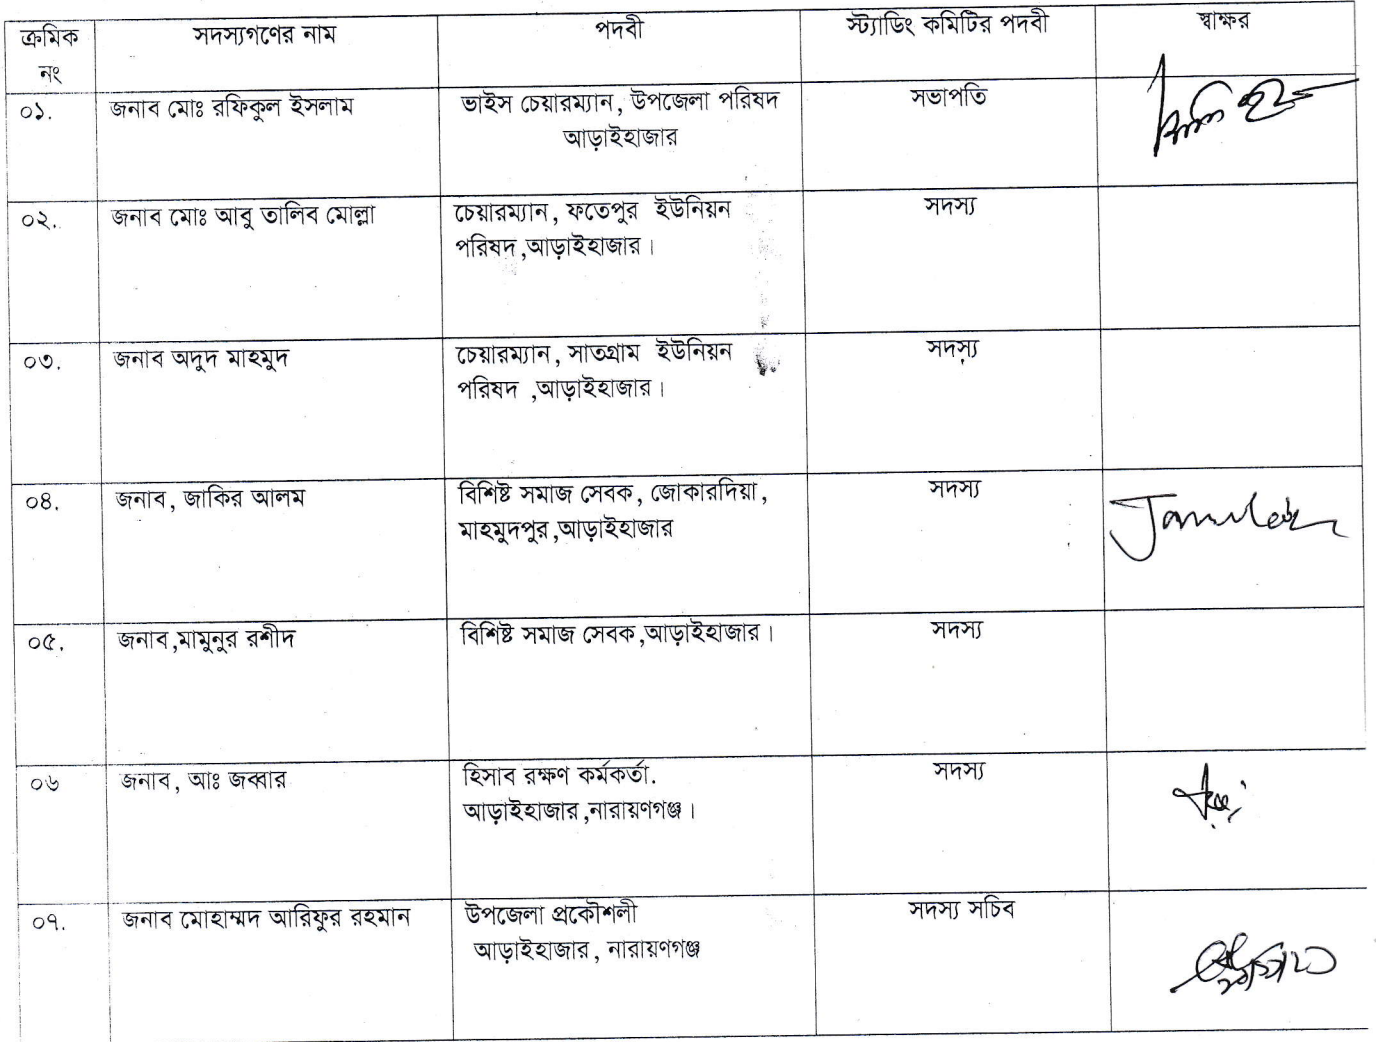 ক্রমিক নং সদস্যগণের নাম পদবী স্ট্যাডিং কমিটির পদবী স্বাক্ষর
০১. জনাব মোঃ রফিকুল ইসলাম ভাইস চেয়ারম্যান, উপজেলা পরিষদ সভাপতি
আড়াইহাজার
০২. জনাব মোঃ আবু তালিব মোল্লা চেয়ারম্যান, ফতেপুর ইউনিয়ন সদস্য
পরিষদ ,আড়াইহাজার।
০৩. জনাব অদুদ মাহমুদ চেয়ারম্যান, সাতগ্রাম ইউনিয়ন সদস্য
পরিষদ ,আড়াইহাজার।
০৪. জনাব, জাকির আলম বিশিষ্ট সমাজ সেবক, জোকারদিয়া, সদস্য
মাহমুদপুর,আড়াইহাজার
০৫. জনাব,মামুনুর রশীদ বিশিষ্ট সমাজ সেবক,আড়াইহাজার। সদস্য
০৬ জনাব, আঃ জব্বার হিসাব রক্ষণ কর্মকর্তা. সদস্য
আড়াইহাজার,নারায়ণগঞ্জ।
০৭. জনাব মোহাম্মদ আরিফুর রহমান উপজেলা প্রকৌশলী সদস্য সচিব
আড়াইহাজার, নারায়ণগঞ্জ